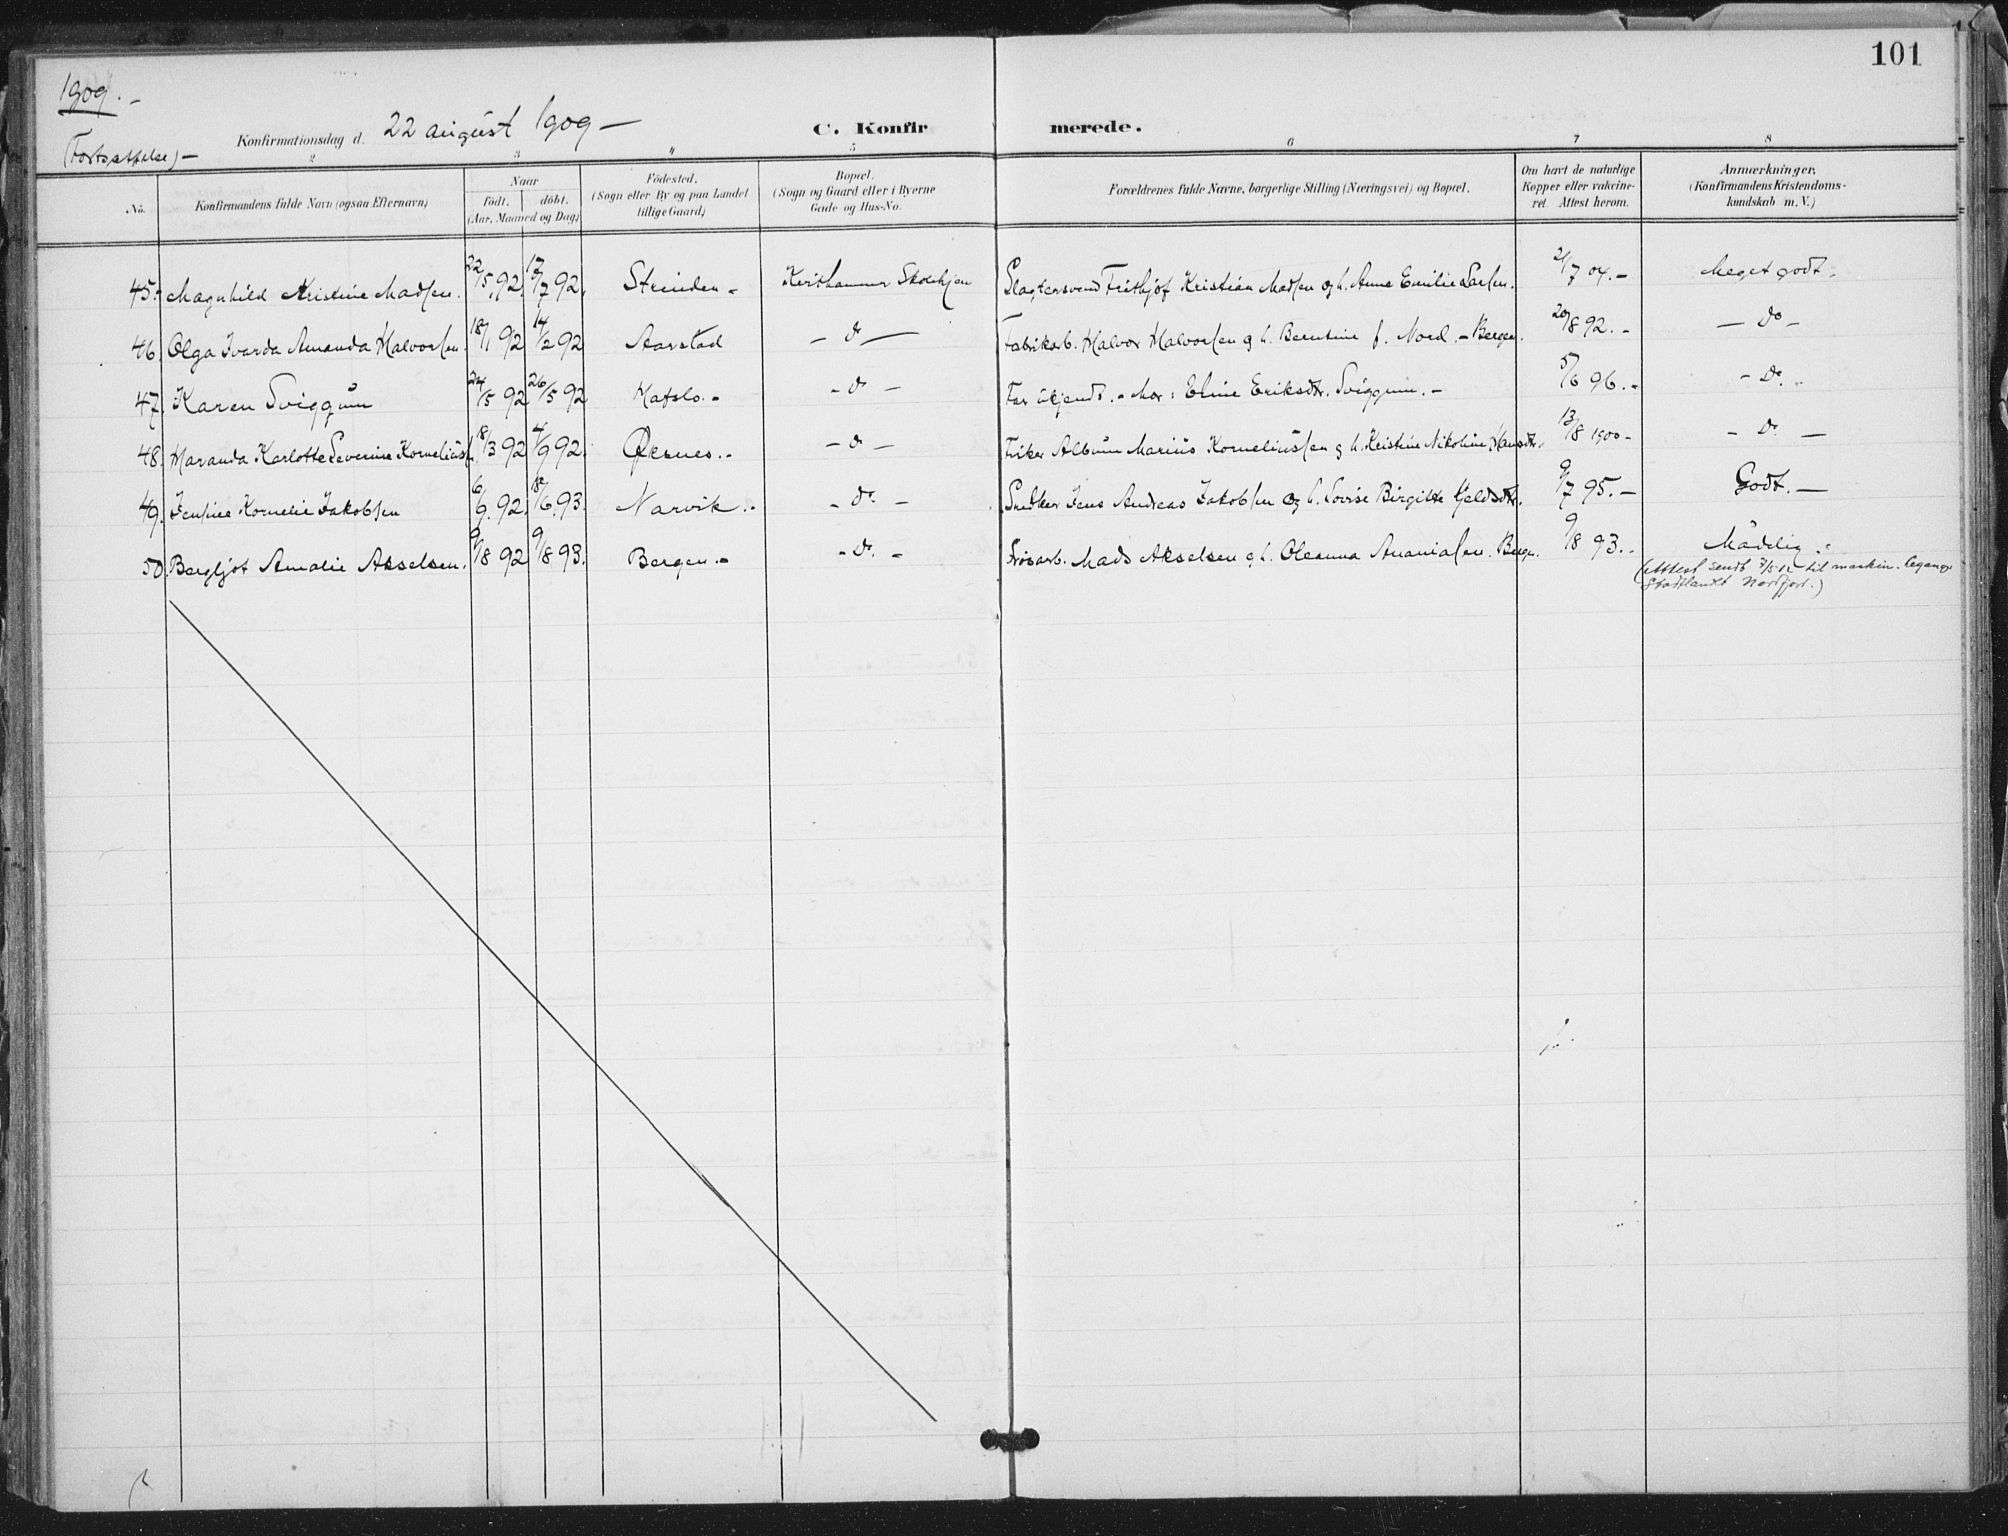 101
1909.-
(Fortsættelse)-
Konfirmationsdag d. 22 august 1909-
C. Konfir merede.
2 3 4 5 6 7 8
No. Konfirmandens fulde Navn (ogsaa Efternavn) Naar födt. döbt. (Aar, Maaned og Dag) Födested. (Sogn eller By og paa Landet tillige Gaard) Bopæl. (Sogn og Gaard eller i Byerne Gade og Hus-No. Forældrenes fulde Navne, borgerlige Stilling (Næringsvei) og Bopæl. Om havt de naturlige Kopper eller vakcineret. Attest herom. Anmærkninger. (Konfirmandens Kristendomskundskab m. V.)
45. Magnhild Kristine Madsen. 22/5 92. 17/7 92. Strinden - Skolehjem Slagtersvend Frithjof Kristian Madsen og h. Anne Emilie Larsen. 2/7 04.- Meget godt.
46. Olga Ivarda Amanda Halvorsen. 18/1 92 14/2 92 Aarstad - do - Fabrikarb. Halvor Halvorsen og h. Berntine f. Nord. - Bergen. 20/8 92.- - Do -
47. Karen Sviggum 24/5 92 26/5 92 Hafslo.- - do - Far ukjendt. - Mor: Eline Eriksdtr. Sviggum.- 5/6 96.- - Do.
48. Maranda Karlotte Severine Korneliuss. 18/3 92 4/9 92. Øksnes.- - do - Fisker Marius Korneliussen og h. Kristine Nikoline Hansdtr. 13/8 1900- - Do. -
49. Jensine Kornelie Jakobsen 6/9. 92. 18/6 93. Narvik.. - do. - Snedker Jens Andreas Jakobsen og h. Birgitte 9/7 95.- Godt.-
50. Bergljot Amalie Akselsen. 9/8 92 9/8 93. Bergen.- - do. - Mads Akselsen og h. Oleanna Ananiasen. Bergen. 9/8 93.- Mådelig.
(Attest sendt til maskin.
Stadtlandt Nordfjord.)